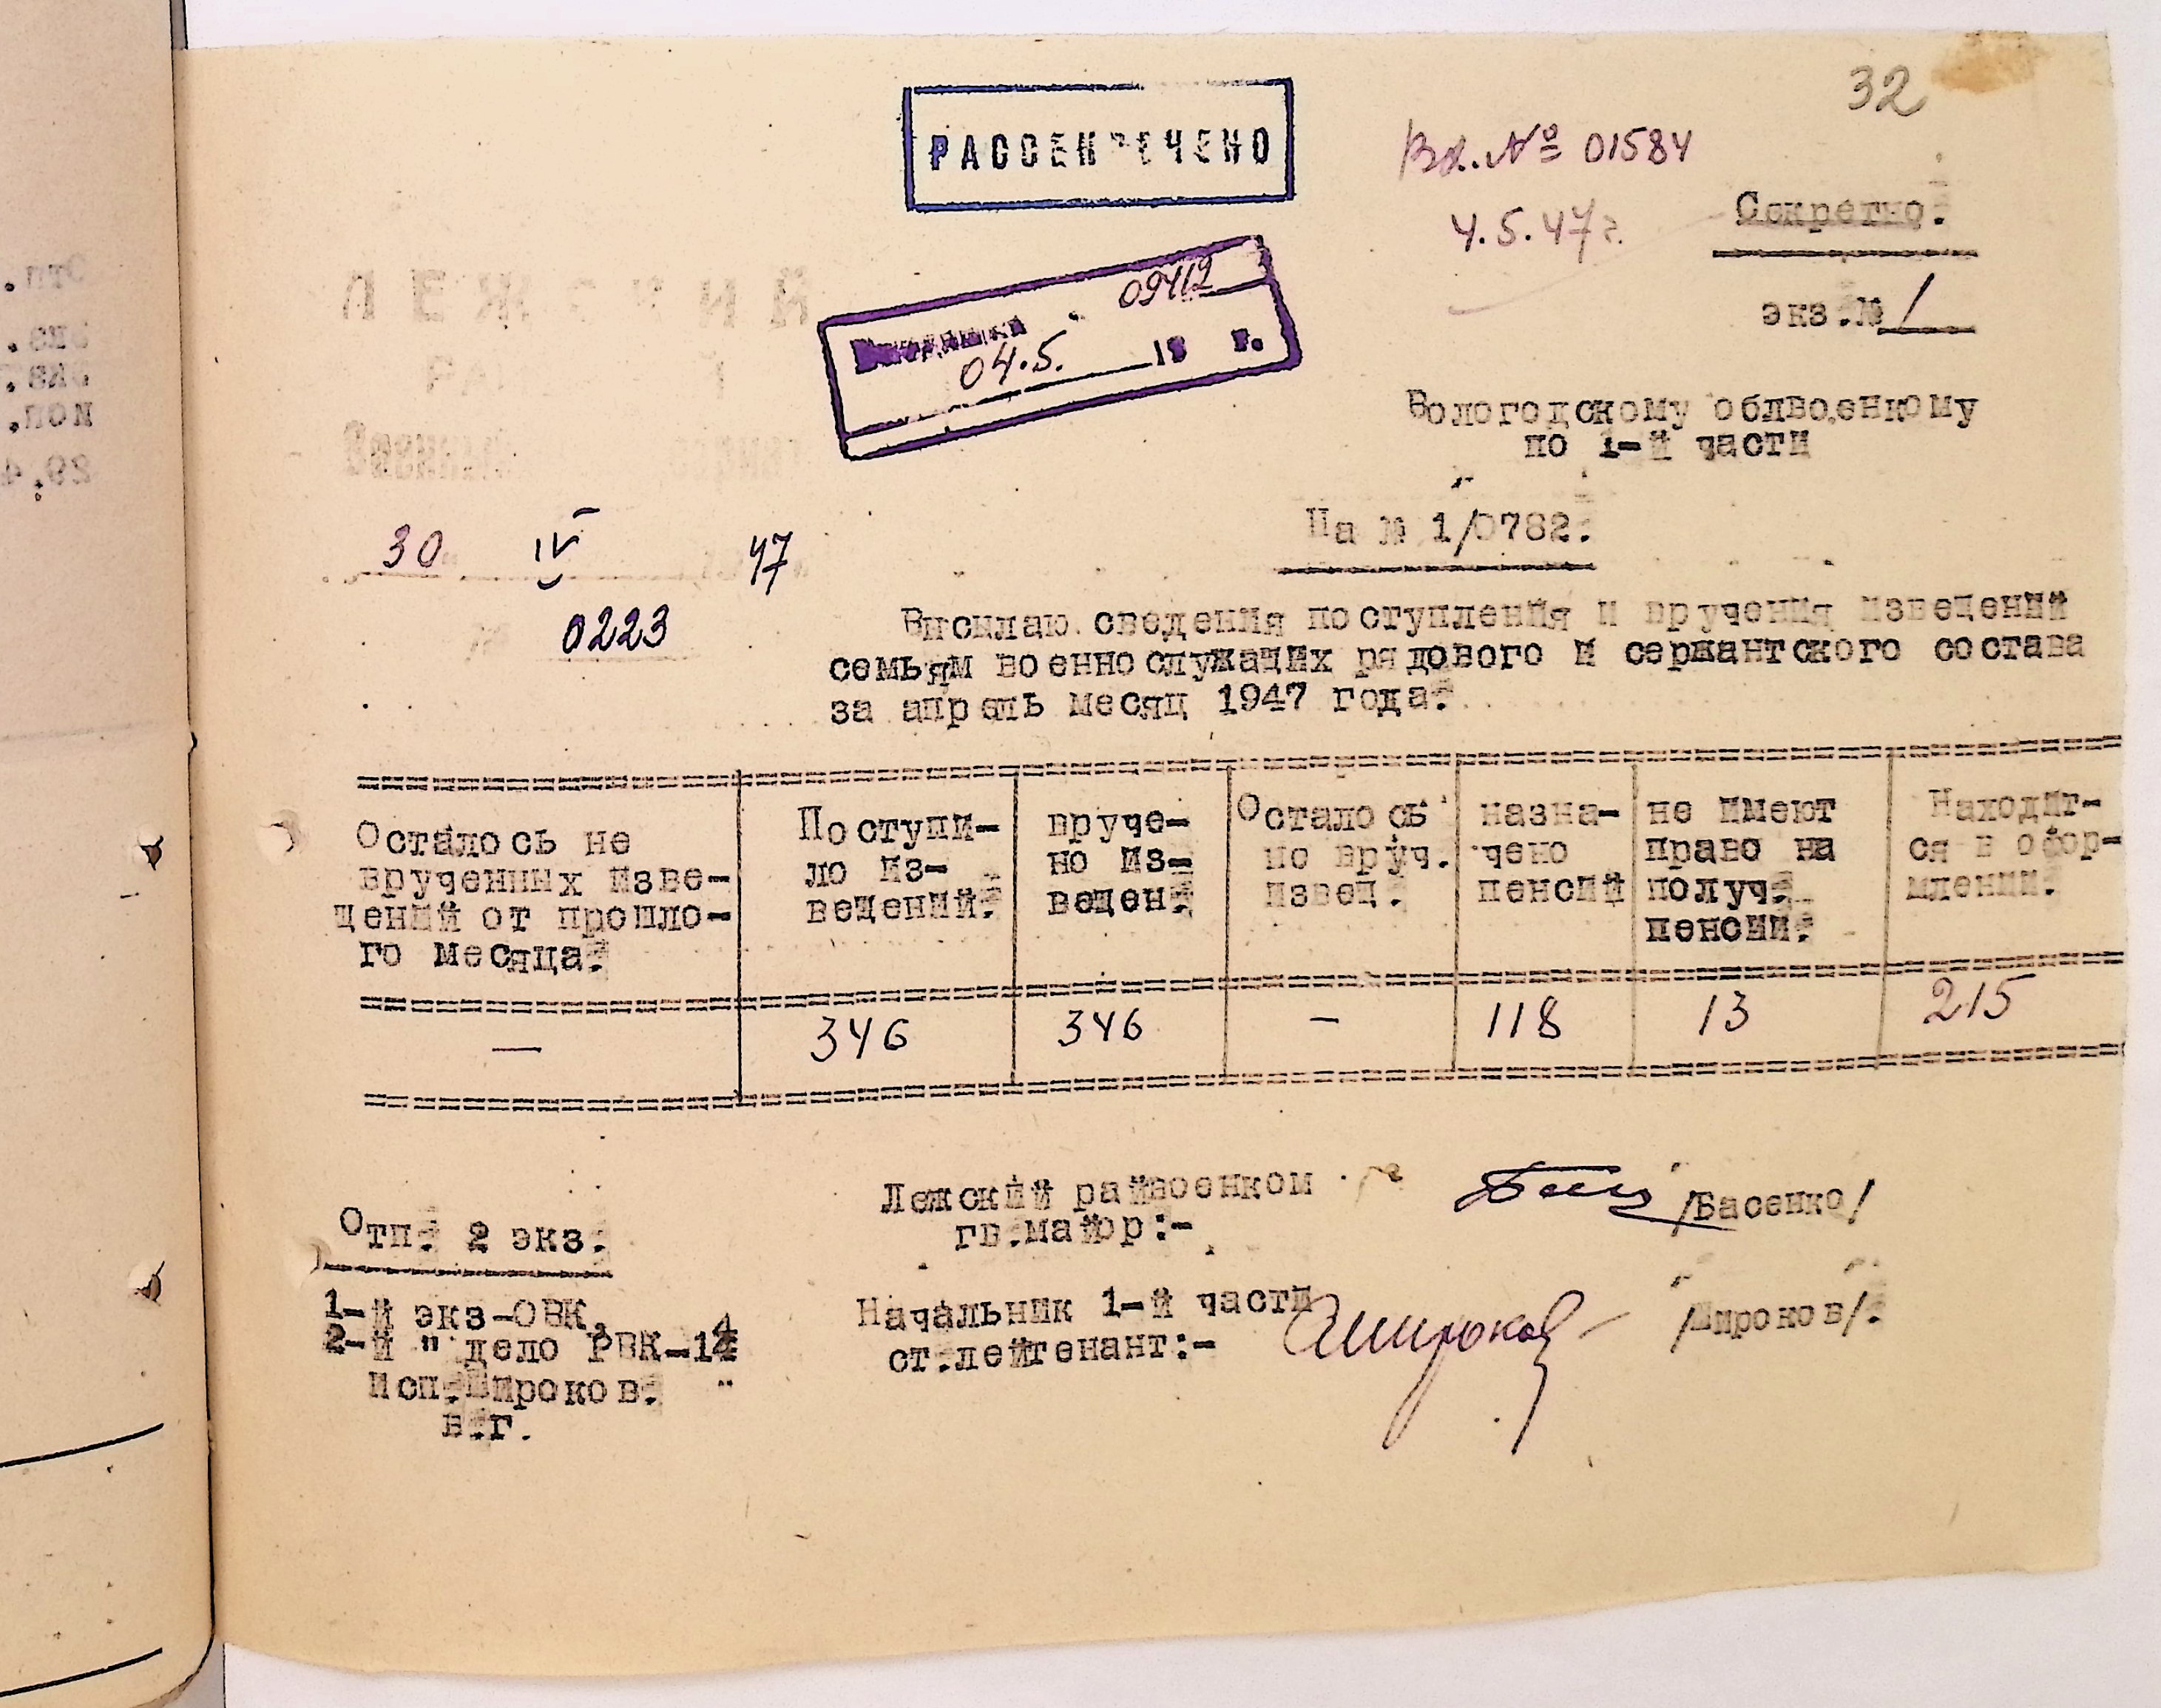 32
РАССЕКРЕЧЕНО
Вх. № 01584
4.5.47 г.
Секретно.
экз.№ 1
09412
04.5. 19 г.
ЛЕЖСКИЙ
Вологодскому облвоенкому
по 1-й части
На № 1/0782.
30 IV 47
0223
Высылаю сведения поступления и вручения извещений
семьям военнослужащих рядового и сержантского состава
за апрель месяц 1947 года.
Осталось не
врученных изве-
щений от прошло-
го месяца.
Поступи-
ло из-
вещений.
вруче-
но из-
вещен.
Осталось
но вруч.
извещ.
назна-
чено
пенсий
не имеют
право на
получ.
пенсии.
Находит-
ся в офор-
млении.
—
346
346
–
118
13
215
Лежский райвоенком
гв.майор:-
/Басенко/
Начальник 1-й части
ст.лейтенант:-
Широков
/Широков/.
Отп. 2 экз.
1-й экз-ОВК,
2-й " дело РВК-14
Исп.Широков.
в.г.